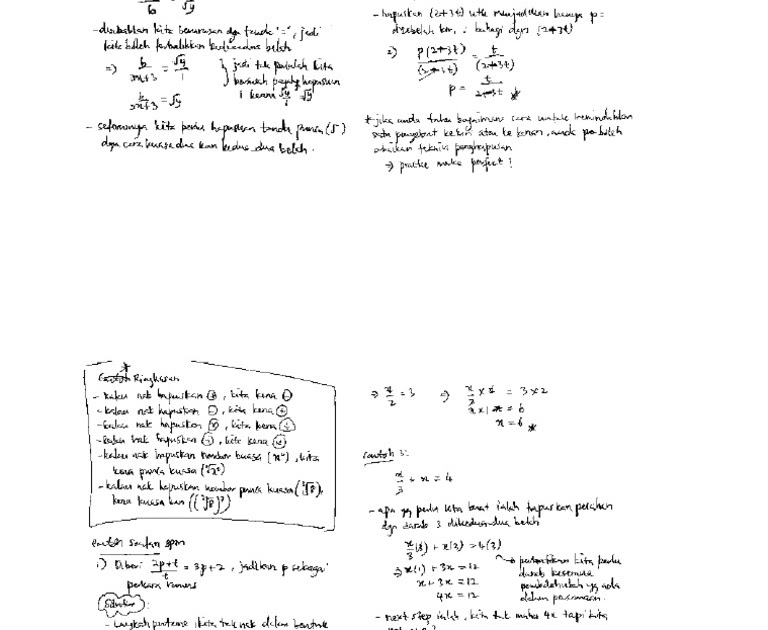 6 √y
- disebabkan kita berurusan dgn tanda "=", jadi
kita boleh terbalikkan kedua-dua belah
⇒ 6/(3x+3) = √y/1 } jadi tak perlulah kita
6/(3x+3) = √y
- seterusnya kita perlu hapuskan tanda punca (√)
dgn cara kuasa dua kan kedua-dua belah.
- hapuskan (2+3t) utk menjadikan hanya p=
disebelah kiri, ∴ bahagi dgn (2+3t)
2) p(2+3t)/(2+3t) = t/(2+3t)
p = t/(2+3t) *
* jika anda tahu bagaimana cara untuk memindahkan
satu pengubah ke kiri atau ke kanan, anda
teknik penghapusan
→ practice make perfect!
Contoh Ringkasan
- kalau nak hapuskan (+), kita kena (-)
- kalau nak hapuskan (-), kita kena (+)
- kalau nak hapuskan (×), kita kena (÷)
- kalau nak hapuskan (÷), kita kena (×)
- kalau nak hapuskan nombor kuasa (x²), kita
kena punca kuasa
- kalau nak hapuskan nombor punca kuasa
kena kuasa kan
Contoh Soalan spm
1) Diberi (2p+t)/t = 3p+2, jadikan p sebagai
perkara rumus
Solution:
- Langkah pertama, kita tak nak dalam bentuk
⇒ x/2 = 3 ⇒ x/2 × 2 = 3 × 2
x × 1 = 6
x = 6 *
Contoh 3:
x/3 + x = 4
- apa yg perlu kita buat ialah hapuskan pecahan
dgn darab 3 dikedua-dua belah
x/3(3) + x(3) = 4(3)
⇒ x(1) + 3x = 12
x + 3x = 12
4x = 12
kita perlu
darab kesemua
yg ada
dalam persamaan.
- next step ialah, kita tak mahu 4x tapi kita